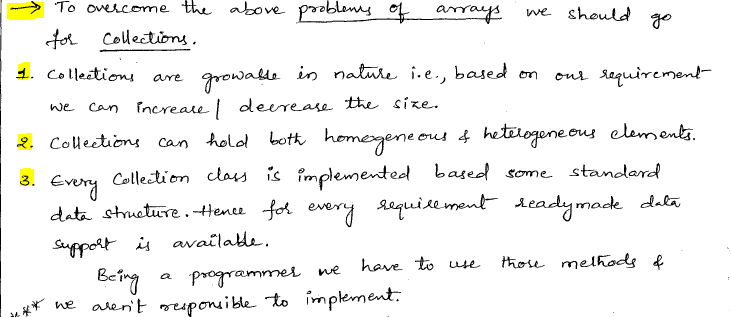 → To overcome the above problems of arrays we should go
for Collections.
1. Collections are growable in nature i.e., based on our requirement
we can increase/decrease the size.
2. Collections can hold both homogeneous & heterogeneous elements.
3. Every Collection class is implemented based some standard
data structure. Hence for every requirement readymade data
support is available.
Being a programmer we have to use those methods &
*** we aren't responsible to implement.